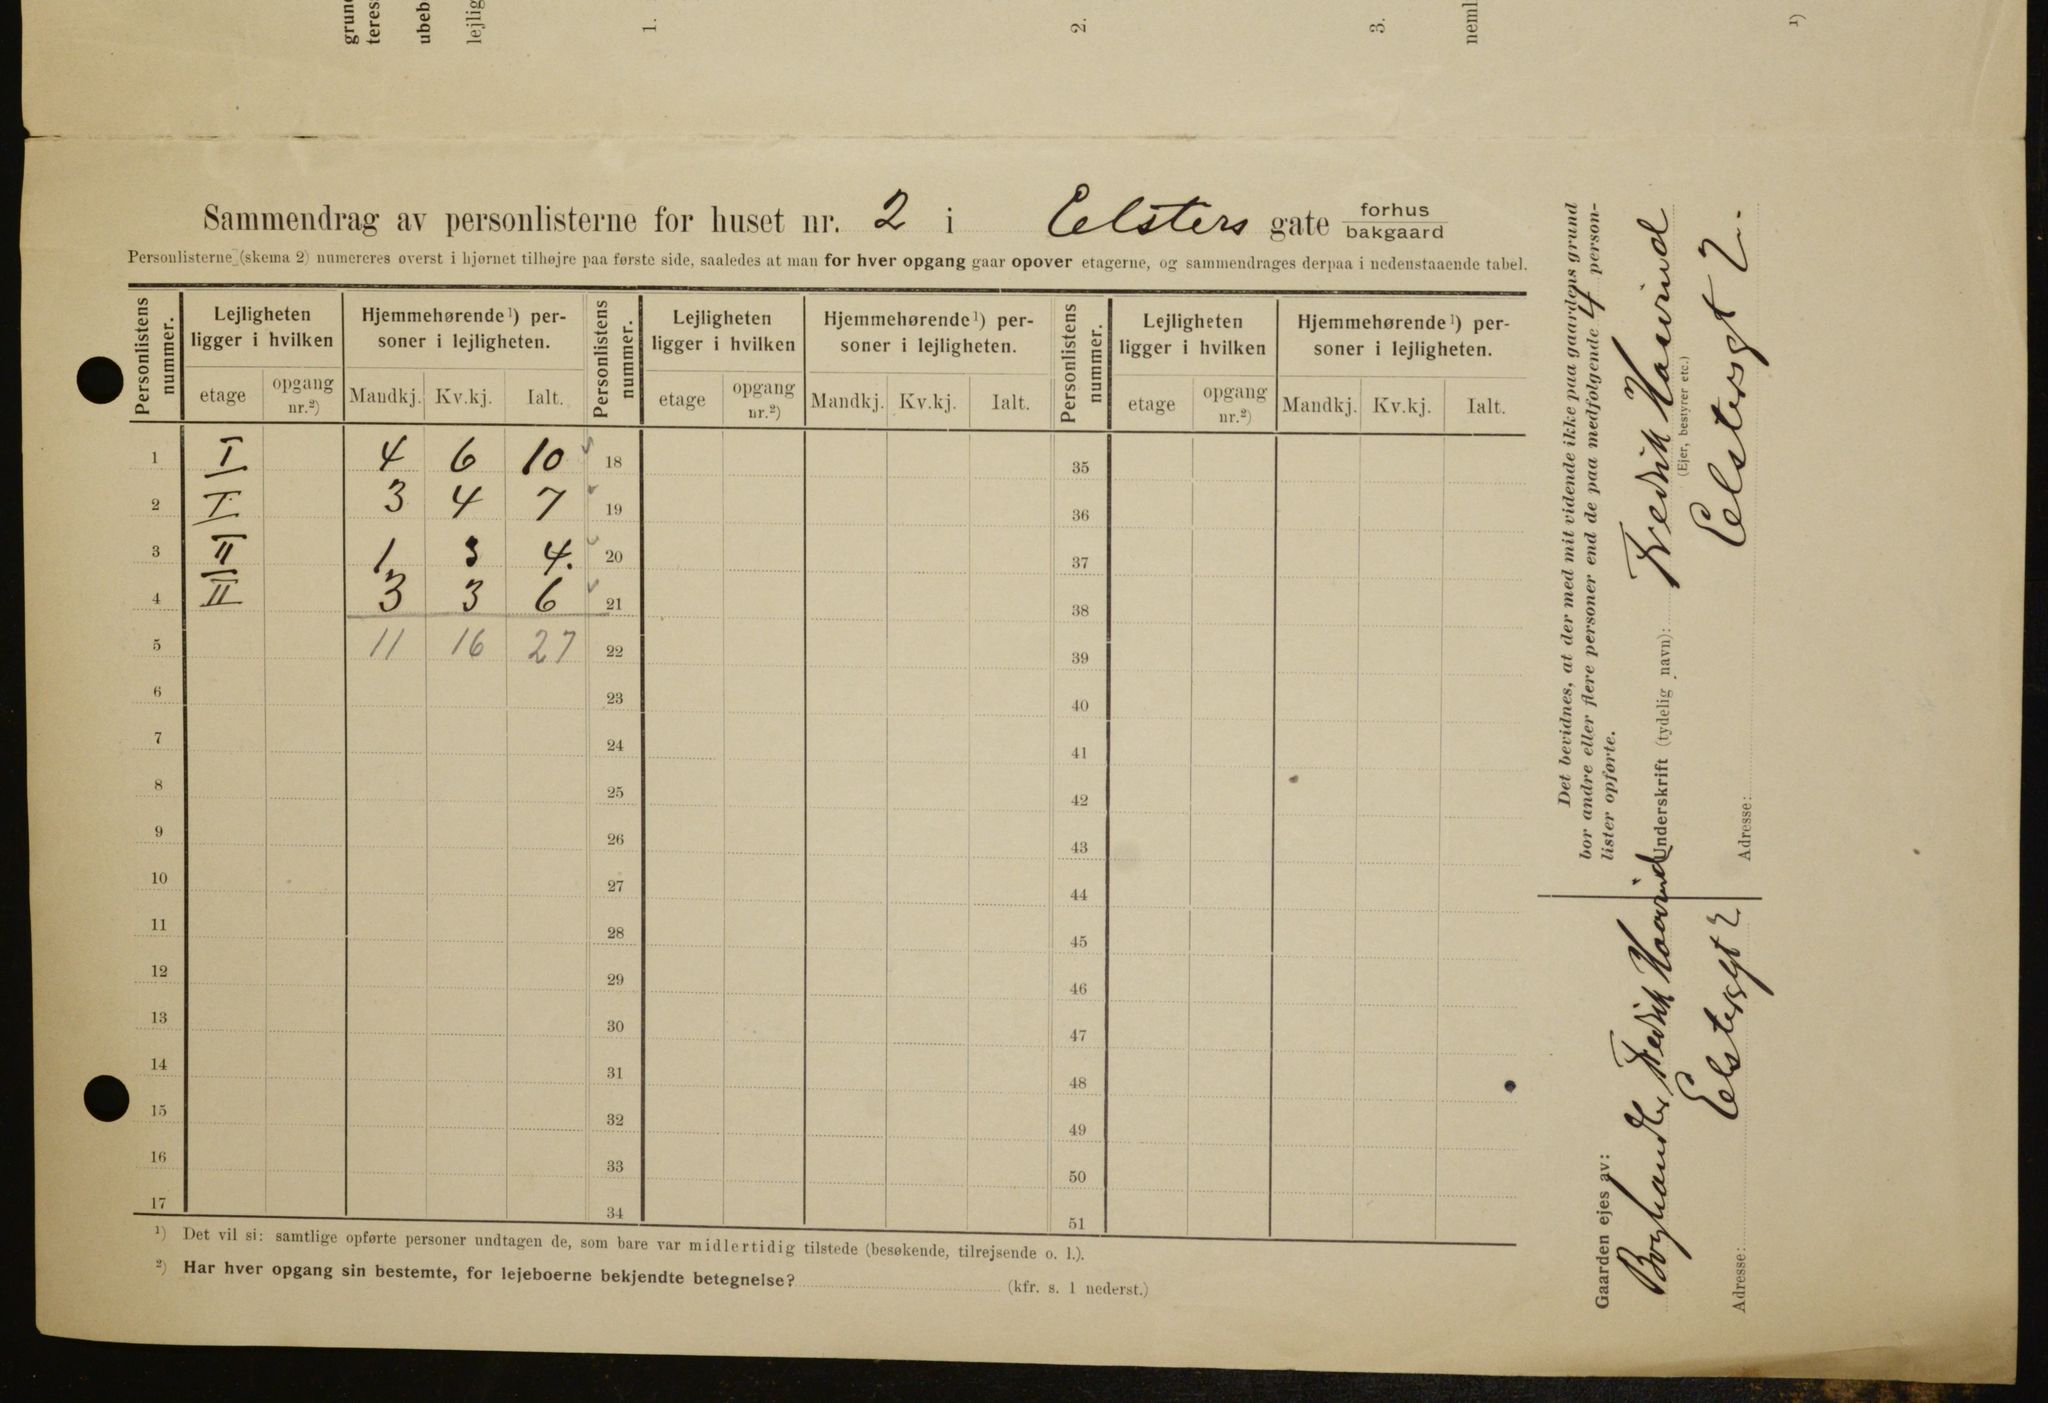 grun
teres
ubeb
lejlig
1.
2.
3.
neml
1)
Sammendrag av personlisterne for huset nr. 2 i Eelsters gate forhus
bakgaard
Personlisterne (skema 2) numereres øverst i hjørnet tilhøjre paa første side, saaledes at man for hver opgang gaar opover etagerne, og sammendrages derpaa i nedenstaaende tabel.
Personlistens nummer. Lejligheten ligger i hvilken Hjemmehørende 1) personer i lejligheten. Personlistens nummer. Lejligheten ligger i hvilken Hjemmehørende 1) personer i lejligheten. Personlistens nummer. Lejligheten ligger i hvilken Hjemmehørende 1) personer i lejligheten.
etage opgang nr.2) Mandkj. Kv.kj. Ialt. etage opgang nr.2) Mandkj. Kv.kj. Ialt. etage opgang nr.2) Mandkj. Kv.kj. Ialt.
1 I 4 6 10 18 35
2 I 3 4 7 19 36
3 II 1 3 4. 20 37
4 II 3 3 6 21 38
5 11 16 27 22 39
6 23 40
7 24 41
8 25 42
9 26 43
10 27 44
11 28 45
12 29 46
13 30 47
14 31 48
15 32 49
16 33 50
17 34 51
1) Det vil si: samtlige opførte personer undtagen de, som bare var midlertidig tilstede (besøkende, tilrejsende o. l.).
2) Har hver opgang sin bestemte, for lejeboerne bekjendte betegnelse? (kfr. s. 1 nederst.)
Det bevidnes, at der med mit vidende ikke paa gaardens grund
bor andre eller flere personer end de paa medfølgende 4 person-
lister opførte.
Underskrift (tydelig navn): Fredrik Haavind
(Ejer, bestyrer etc.)
Adresse: Eelstersgt 2.
Gaarden ejes av:
Boghandler Fredrik Haavind
Adresse: Eelstersgt 2